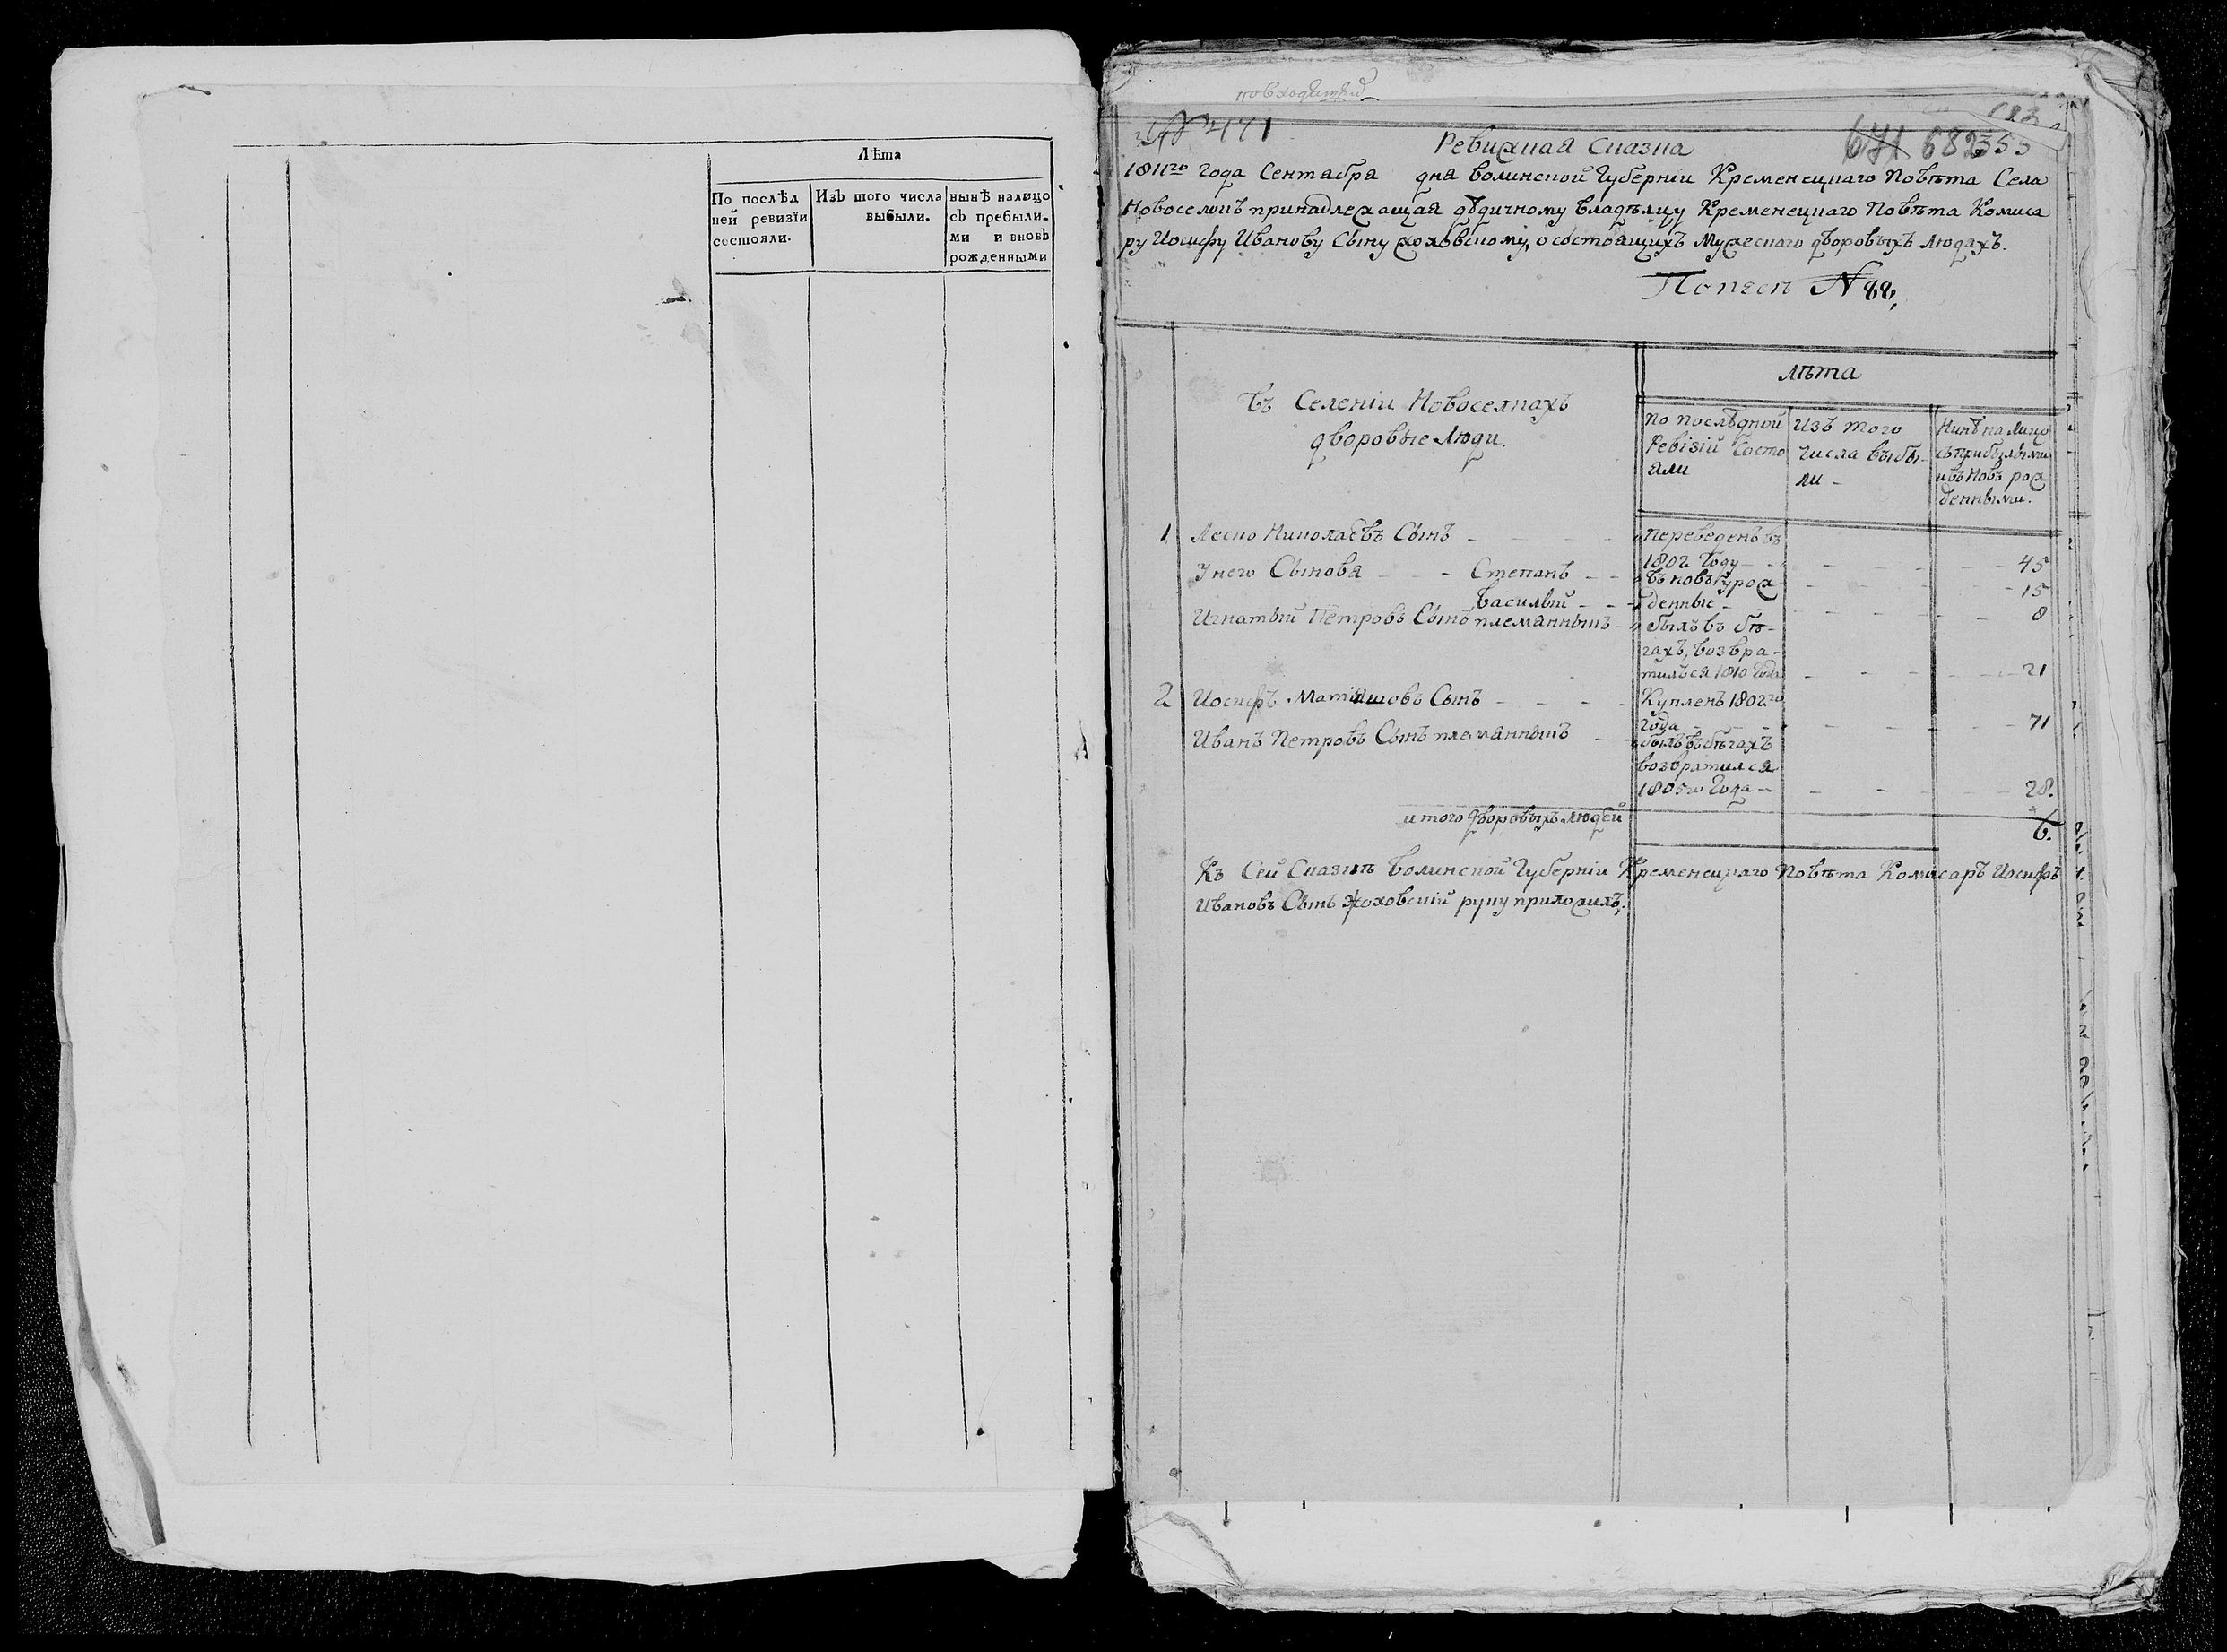 Лѣта
По послѣд
ней ревизїи
состояли.
Изъ того числа
выбыли.
нынѣ налицо
съ пребылы-
ми и вновь
рожденными
№ 471
682
Ревижная Сказка
1811го года Сентабра дня Волинской Губернїи Кременецкаго Повѣта Села
Новоселокъ принадлежащая дѣдичному владѣлцу Кременецкаго Повѣта Комиса
ру Иосифу Иванову Сыну Жоховскому, о состоящихъ мужескаго дворовыхъ людахъ.
№ 88,
Въ Селенїи Новоселкахъ
дворовые люди.
лѣта
По послѣдной
Ревїзїй Состо
яли
Изъ того
Числа выбы-
ли -
Нинѣ на лицо
съ прибылыми
и въ Новъ рож
денными.
1 Леско Николаевъ Сынъ
переведенъ въ
1802 Году
45
У него Сынова Степанъ
Въ новъ урож
15
Василый
денные
8
Игнатый Петровъ Сынъ племанныкъ
былъ въ бѣ-
гахъ, возвра-
тился 1810 года
21
2 Иосифъ Матїяшовъ Сынъ
Купленъ 1802го
года
71
Иванъ Петровъ Сынъ племанныкъ
былъ въ бѣгахъ
возвратился
1805го Года
28.
итого дворовыхъ людей
6.
Къ Сей Сказкѣ Волинской Губернїи Кременецкаго Повѣта Комисаръ Иосифъ
Ивановъ Сынъ Жоховскїй руку приложилъ;